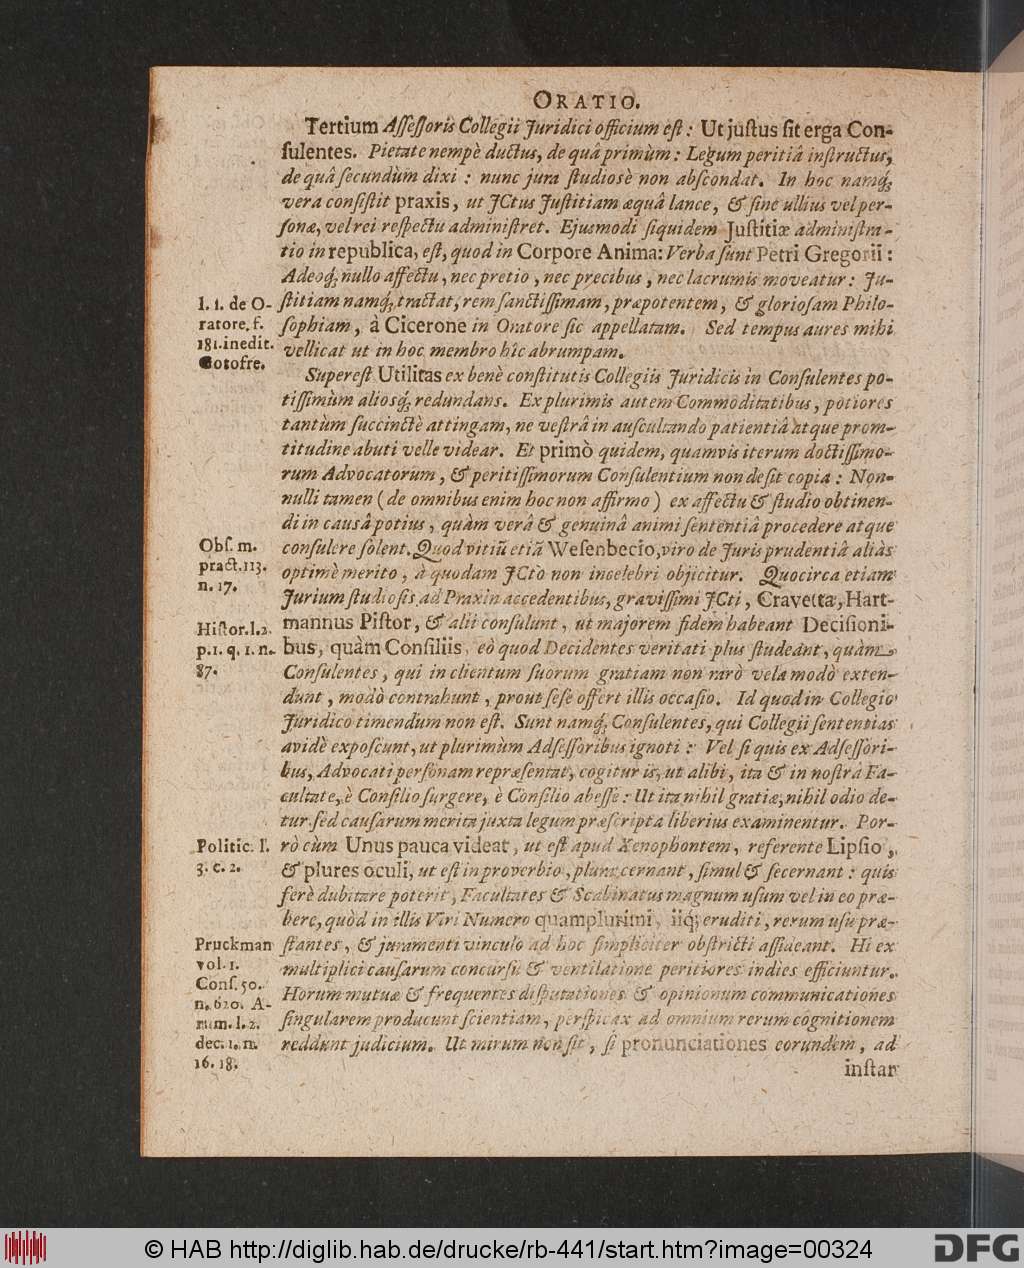 ORATIO.
Tertium Aſſeſſoris Collegii Juridici officium eſt: Ut juſtus ſit erga Con-
ſulentes. Pietate nempè ductus, de quâ primùm: Legum peritiâ inſtructus,
de quâ ſecundùm dixi: nunc jura ſtudiosè non abſcondat. In hoc namq́;
vera conſiſtit praxis, ut JCtus Juſtitiam æquâ lance, & ſine ullius vel per-
ſonæ, vel rei reſpectu adminiſtret. Ejuſmodi ſiquidem Juſtitiæ adminiſtra-
tio in republica, eſt, quod in Corpore Anima: Verba ſunt Petri Gregorii:
Adeoq́; nullo affectu, nec pretio, nec precibus, nec lacrumis moveatur: Ju-
ſtitiam namq́; tractat, rem ſanctiſſimam, præpotentem, & glorioſam Philo-
ſophiam, à Cicerone in Oratore ſic appellatam. Sed tempus aures mihi
vellicat ut in hoc membro hîc abrumpam.
l. 1. de O-
ratore. f.
181. inedit.
Gotofre.
Supereſt Utilitas ex benè conſtitutis Collegiis Juridicis in Conſulentes po-
tiſſimùm aliosq́; redundans. Ex plurimis autem Commoditatibus, potiores
tantùm ſuccinctè attingam, ne veſtrâ in auſcultando patientiâ atque prom-
titudine abuti velle videar. Et primò quidem, quamvis iterum doctiſſimo-
rum Advocatorum, & peritiſſimorum Conſulentium non deſit copia: Non-
nulli tamen (de omnibus enim hoc non affirmo) ex affectu & ſtudio obtinen-
di in causâ potius, quàm verâ & genuinâ animi ſententiâ procedere atque
conſulere ſolent. Quod vitiũ etiã Weſenbecio, viro de Juris prudentiâ aliàs
optimè merito, à quodam JCto non incelebri objicitur. Quocirca etiam
Jurium ſtudioſis ad Praxin accedentibus, graviſſimi JCti, Cravetta, Hart-
mannus Piſtor, & alii conſulunt, ut majorem fidem habeant Deciſioni-
bus, quàm Conſiliis, eò quod Decidentes veritati plus ſtudeant, quàm
Conſulentes, qui in clientum ſuorum gratiam non rarò vela modò exten-
dunt, modò contrahunt, prout ſeſe offert illis occaſio. Id quod in Collegio
Juridico timendum non eſt. Sunt namq́; Conſulentes, qui Collegii ſententias
avidè expoſcunt, ut plurimùm Adſeſſoribus ignoti: Vel ſi quis ex Adſeſſori-
bus, Advocati perſonam repræſentat, cogitur is, ut alibi, ita & in noſtrâ Fa-
cultate, è Conſilio ſurgere, è Conſilio abeſſe: Ut ita nihil gratiæ, nihil odio de-
tur ſed cauſarum merita juxta legum præſcripta liberius examinentur. Por-
rò cùm Unus pauca videat, ut eſt apud Xenophontem, referente Lipſio,
& plures oculi, ut eſt in proverbio, plura cernant, ſimul & ſecernant: quis
ferè dubitare poterit, Facultates & Scabinatus magnum uſum vel in eo præ-
bere, quòd in illis Viri Numero quamplurimi, iiq́; eruditi, rerum uſu præ-
ſtantes, & juramenti vinculo ad hoc ſimpliciter obſtricti aſſideant. Hi ex
multiplici cauſarum concurſu & ventilatione peritiores indies efficiuntur.
Horum mutuæ & frequentes diſputationes & opinionum communicationes
ſingularem producunt ſcientiam, perſpicax ad omnium rerum cognitionem
reddunt judicium. Ut mirum non ſit, ſi pronunciationes eorundem, ad
inſtar
Obſ. m.
pract. 113.
n. 17.
Hiſtor. l. 2.
p. 1. q. 1. n.
87.
Politic. l.
3. c. 2.
Pruckman
vol. 1.
Conſ. 50.
n. 620. A-
nim. l. 2.
dec. 1. n.
16. 18.
© HAB http://diglib.hab.de/drucke/rb-441/start.htm?image=00324
DFG